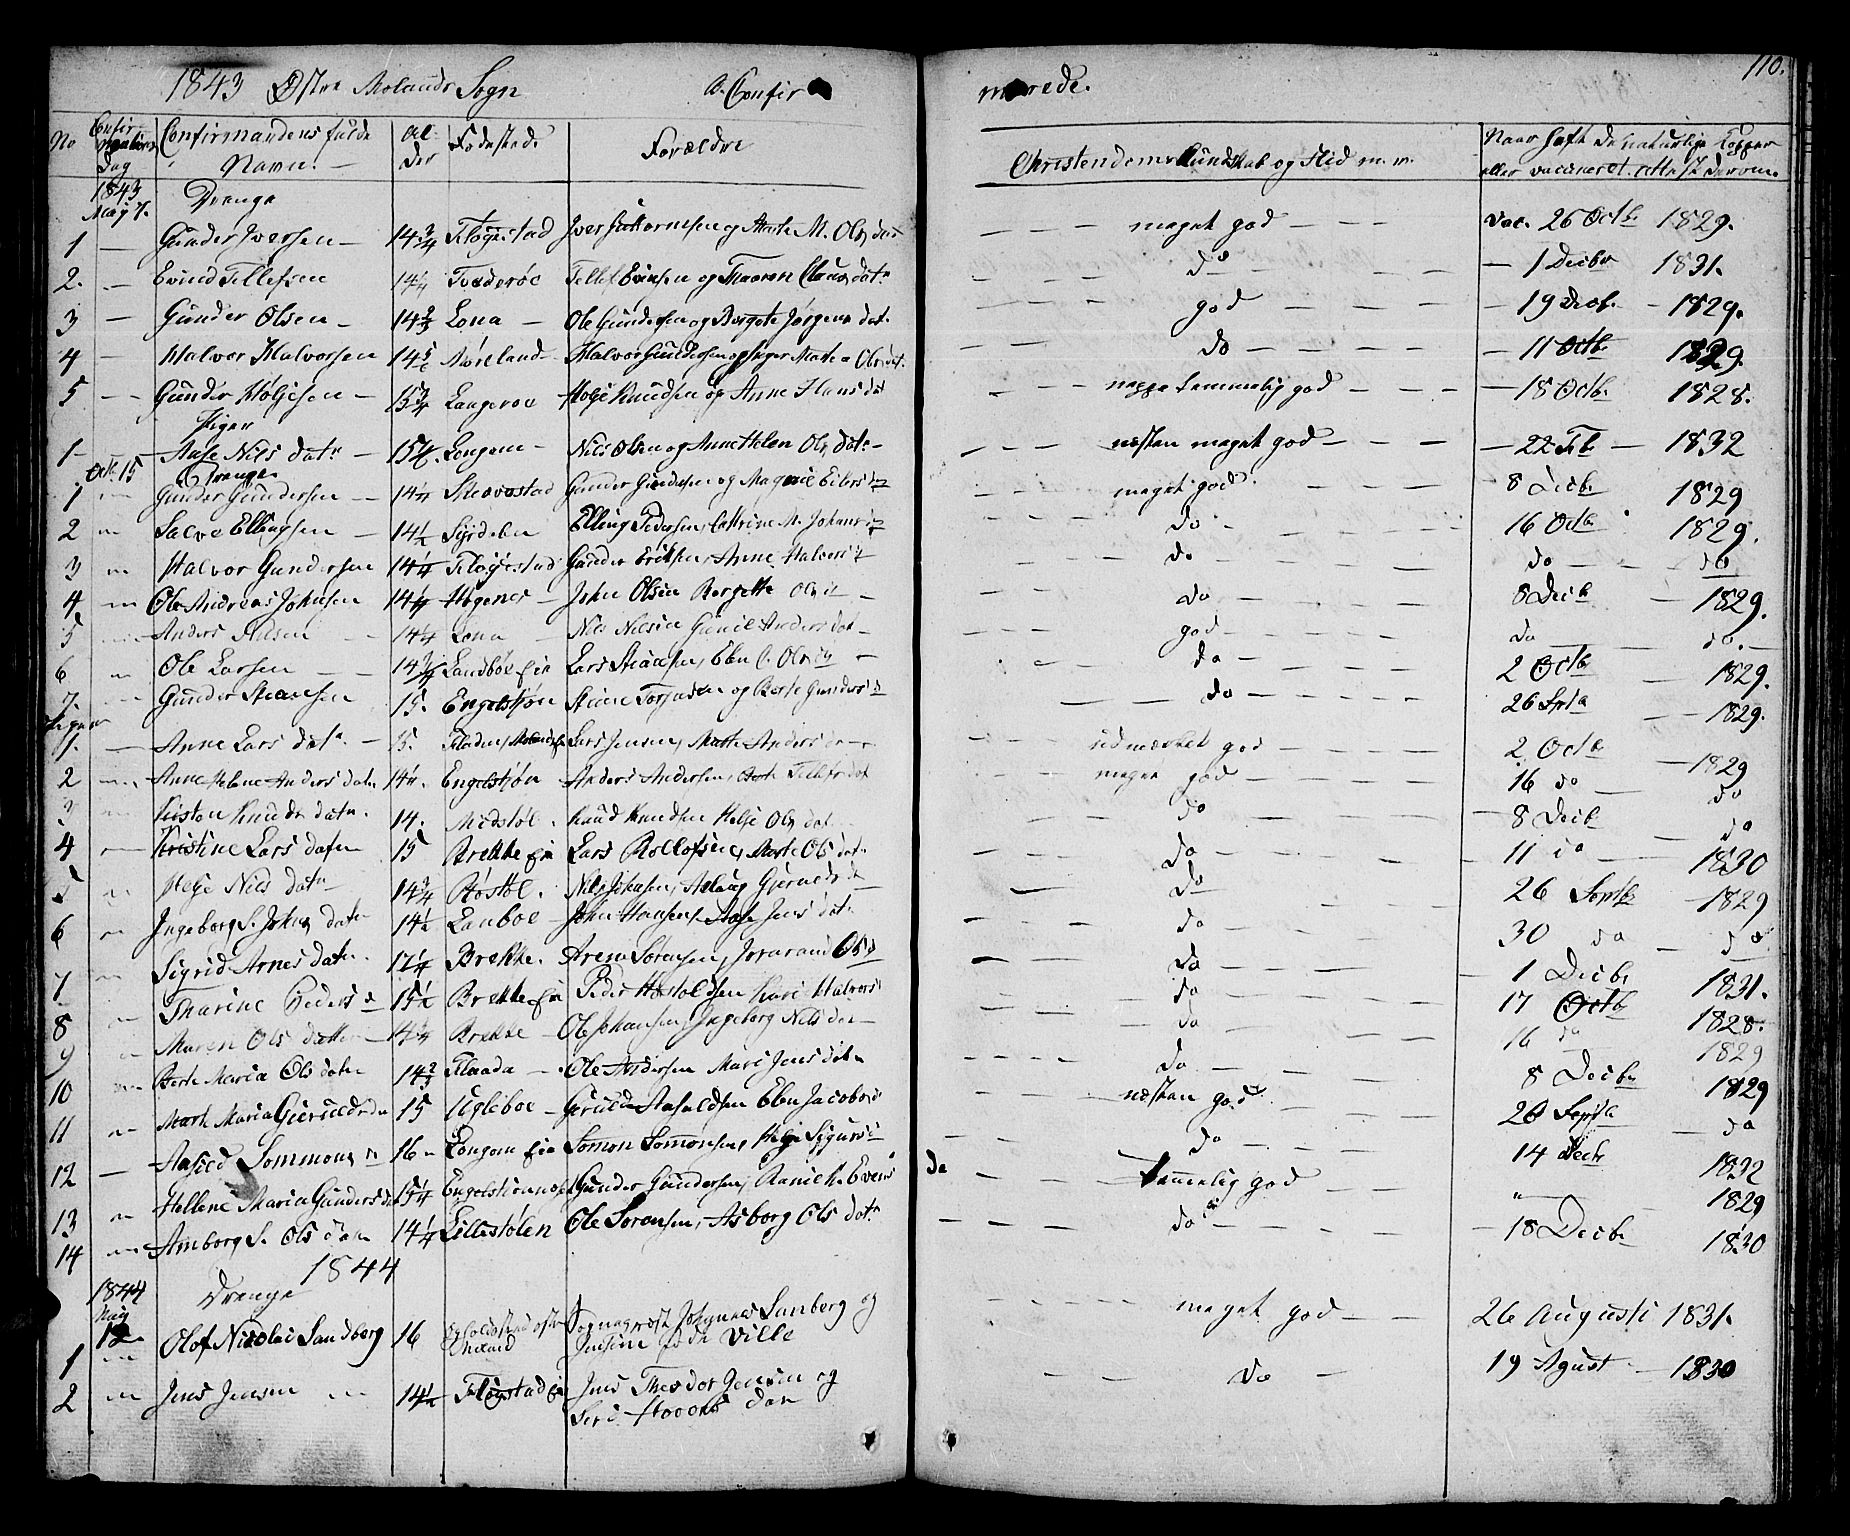 110.
1843 Østre Molands Sogn B. Confirmerede.
No Confirmations Dag Confirmandens fulde Navn. Alder Fødested Forældre Christendoms Kundskab og Flid m. v. Naar haft de naturlige Kopper eller vaccineret. Attest derom.
1843 May 7. Drenge
1 — Gunder Iversen — 14 3/4 Fløgestad Iver Guttormsen og Marte M. Ols datr — meget god — vac. 26 Octb 1829.
2. — Evind Tellefsen 14 1/4 Tvederøe Tellef Evensen og Taaren Claus datr — do — 1 Decbr 1831.
3 — Gunder Olsen — 14 2/3 Lona — Ole Gundersen og Bergete Jørgens dat. — god — 19 Decb. — 1829.
4 — Halvor Halvorsen 14 5/6 Møreland Halvor Gundersen og Inger Marte Ols dat. — do — 11 Octb. 1829.
5 — Gunder Holjesen — 15 3/4 Langeroe Holje Knudsen og Anne Hans dat — neppe temmelig god — 18 Octb. 1828.
Piger
1 — Aase Nils datr — 15 1/2. Longem — Nils Olsen og Anne Helen Ols datr — næsten meget god — 22 Fb — 1832
Octb. 15 Drenge
1 — Gunder Gundersen — 14 1/4 Skaavestad Gunder Gundersen og Magnild Eilers d — meget god. 8 Decb. 1829
2 — Salve Ellingsen — 14 1/2 Syrdalen Elling Pedersen, Cathrine M. Johans d — do — 16 Octb. 1829.
3 — Halvor Gundersen 14 1/4 Fløgestad Gunder Eriksen, Anne Halvors d — do — do — do
4. — Ole Andreas Johnsen 14 1/4 Høgenes — John Olsen Bergette Ols d — do 8 Decb — 1829.
5 — Anders Nilsen — 14 1/4 Lona — Nils Nilsen Gunil Anders dat — god — do — do. —
6 — Ole Larsen — 14 3/4 Landbøe Eie Lars Steensen, Eben C. Ols d — do — 2 Octb 1829.
7. — Gunder Steensen 15. Engelstjøn Steen Torjusen og Berte Gunders d — do — 26 Septb — 1829.
Piger
1. — Anne Lars datr. — 15. Fladen, Molands Eie Lars Jensen, Marte Anders datr — udmerket god — 2 Octb — 1829
2 — Anne Helene Anders datr 14 1/2. Engelstjøn Anders Andersen, Berte Tellefs dat — meget god — 16 do — do
3 — Kirsten Knuds datr. 14. Midstøl. Knud Knudsen Helje Ols dat — do — 8 Decb — do
4 — Kristine Lars datr 15 Brekke Eie Lars Rollofsen, Marte Ols datr — do — 11 do — 1830
5 — Helje Nils datr 14 3/4 Røstøl. Nils Johnsen, Aslaug Gjeruls d — do — 26 Septb — 1829
6 — Ingeborg S. Johns datr 14 1/2 Lanboe — John Hansen, Aase Jens datr — do — 30 do — do
7 — Sigrid Arnes datr. 17 1/4 Brekke. Aren Sørensen, Ols d — do — 1 Decbr 1831.
8 — Tharine Peders d 15 1/2 Brekke Eie Peder Kari Halvors d — do — 17 Octb 1828.
9 — Maren Ols datter — 14 1/4 Brekke — Ole Johansen, Ingeborg Nils datr — do — 16 do 1829
10 — Berte Maria Ols datr 14 2/3 Flaada — Ole Andersen Mari Jens datr — do — 8 Decbr 1829
11 — Marte Maria Gieruldsdr 15 Ugleboe — Gieruld Aasuldsen Eben Jacobs d — næsten god — 28 Septb — do
12 — Aasild Sommons d 16 — Longem Eie Somon Somonsen, Helje Sigurs d — do — 14 Decb 1832
13 — Hellene Maria Gunders d 15 1/4 Engelstiønnes Eie Gunder Gundersen, Ranie K. Evens d — temmelig god — " — 1829
14 — Amborg S. Ols datr 14 1/4 Lillestølen Ole Sørensen, Asborg Ols datr — do — 18 Decb. 1830
1844
1844 May 12 Drenge
1 — Olof Nicolai Sandberg 16 Sognepræst Johannes Sanberg og Justine født Ville — meget god — 26 Augusti 1831.
2 — Jens Jensen — 14 1/2 Fløgstad Eie Jens Thesdor Jensen og Seri datr — do — 19 Agust — 1830